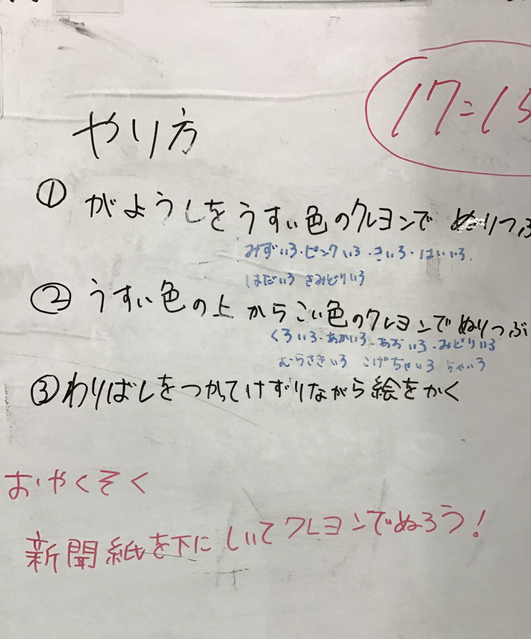 17=15
やり方
① がようしをうすい色のクレヨンで ぬりつぶ
みずいろ・ピンクいろ・きいろ・はいいろ
はだいろ きみどりいろ
② うすい色の上からこい色のクレヨンでぬりつぶ
くろいろ・あかいろ・あおいろ・みどりいろ
むらさきいろ こげちゃいろ ちゃいろ
③ わりばしをつかてけずりながら絵をかく
おやくそく
新聞紙を下にしいてクレヨンでぬろう！